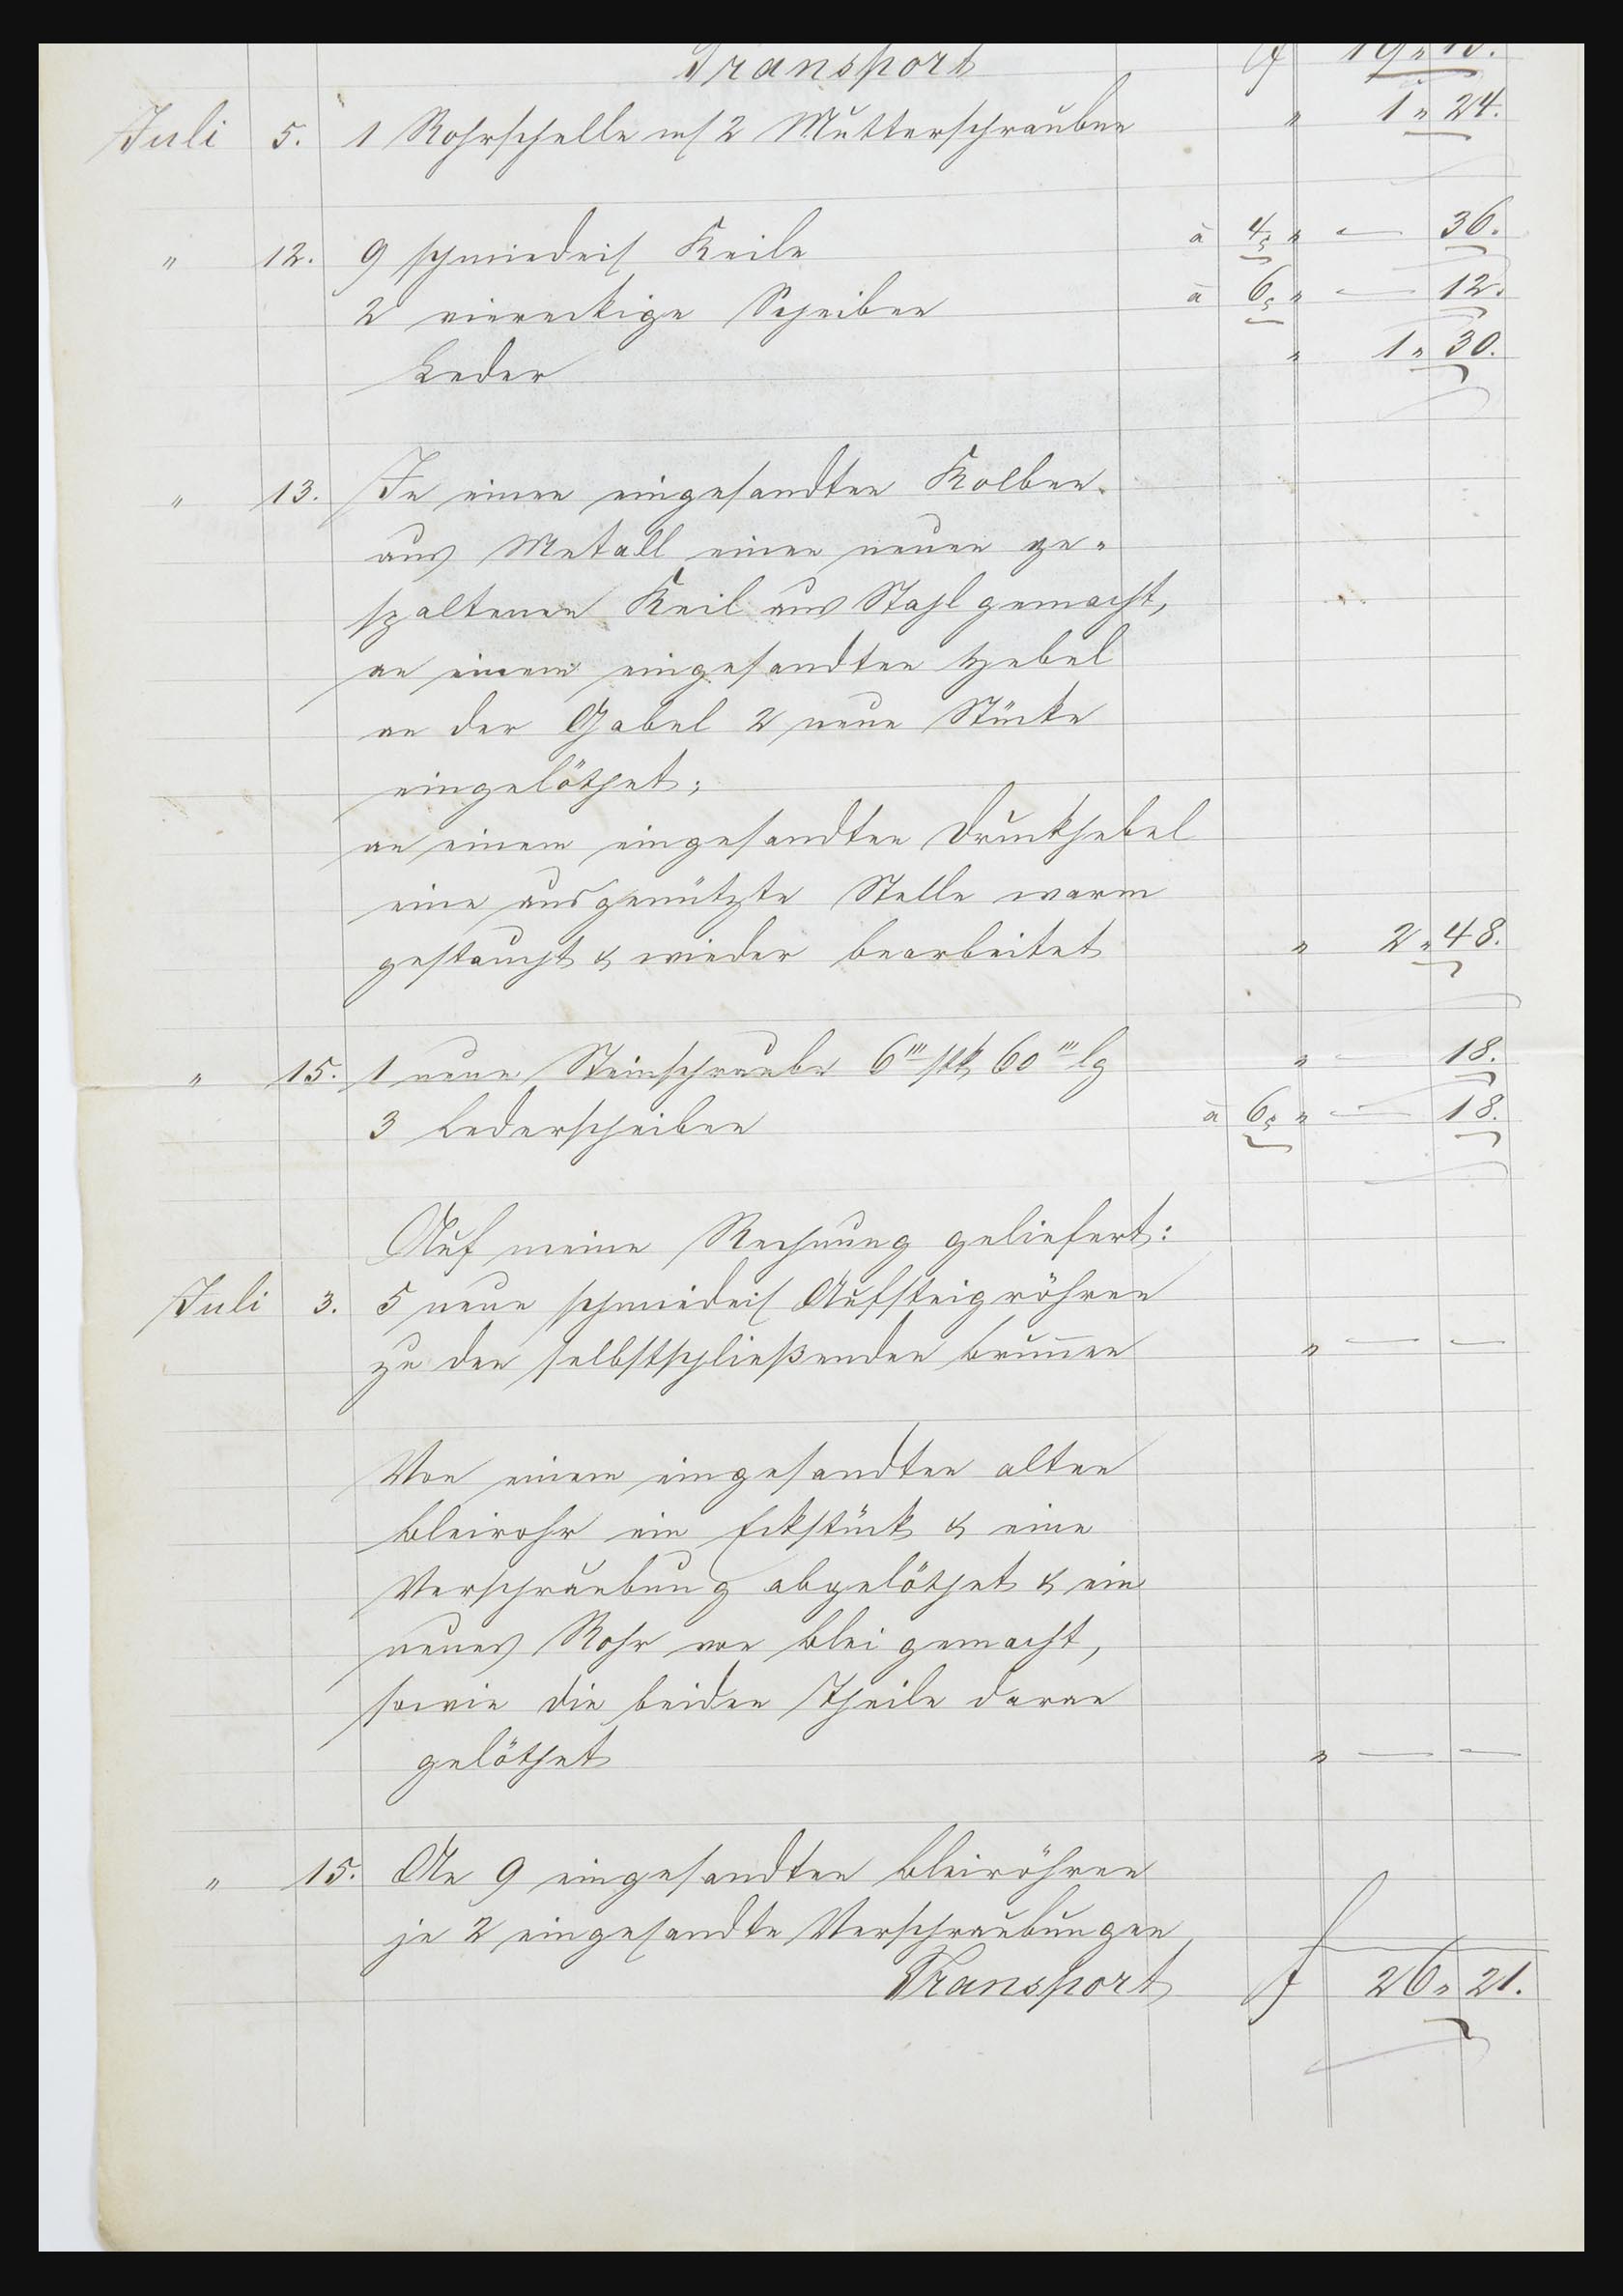 Transport f 19 " 15.
Juli 5. 1 Rohrschelle m/ 2 Mutterschrauben " 1 " 24.
" 12. 9 schmiedeis Keile à 4 " — 36.
2 viereckige Scheiben à 6 " — 12.
Leder " 1 " 30.
" 13. In einen eingesandten Kolben
aus Metall einen neuen ge-
spaltenen Keil aus Stahl gemacht,
an einem eingesandten Hebel
an der Gabel 2 neue Stücke
eingelöthet;
an einem eingesandten Druckhebel
eine ausgenützte Stelle warm
gestaucht & wieder bearbeitet " 2 " 48.
" 15. 1 neue Steinschraube 6''' stk 60''' lg " — 18.
3 Lederscheiben à 6 " — 18.
Auf meine Rechnung geliefert:
Juli 3. 5 neue schmiedeis Aufsteigröhren
zu den selbstschließenden Brunnen " — —
Von einem eingesandten alten
Bleirohr ein Eckstück & eine
Verschraubung abgelöthet & ein
neues Rohr von Blei gemacht,
sowie die beiden Theile daran
gelöthet " — —
" 15. An 9 eingesandten Bleiröhren
je 2 eingesandte Verschraubungen
Transport f 26 " 21.